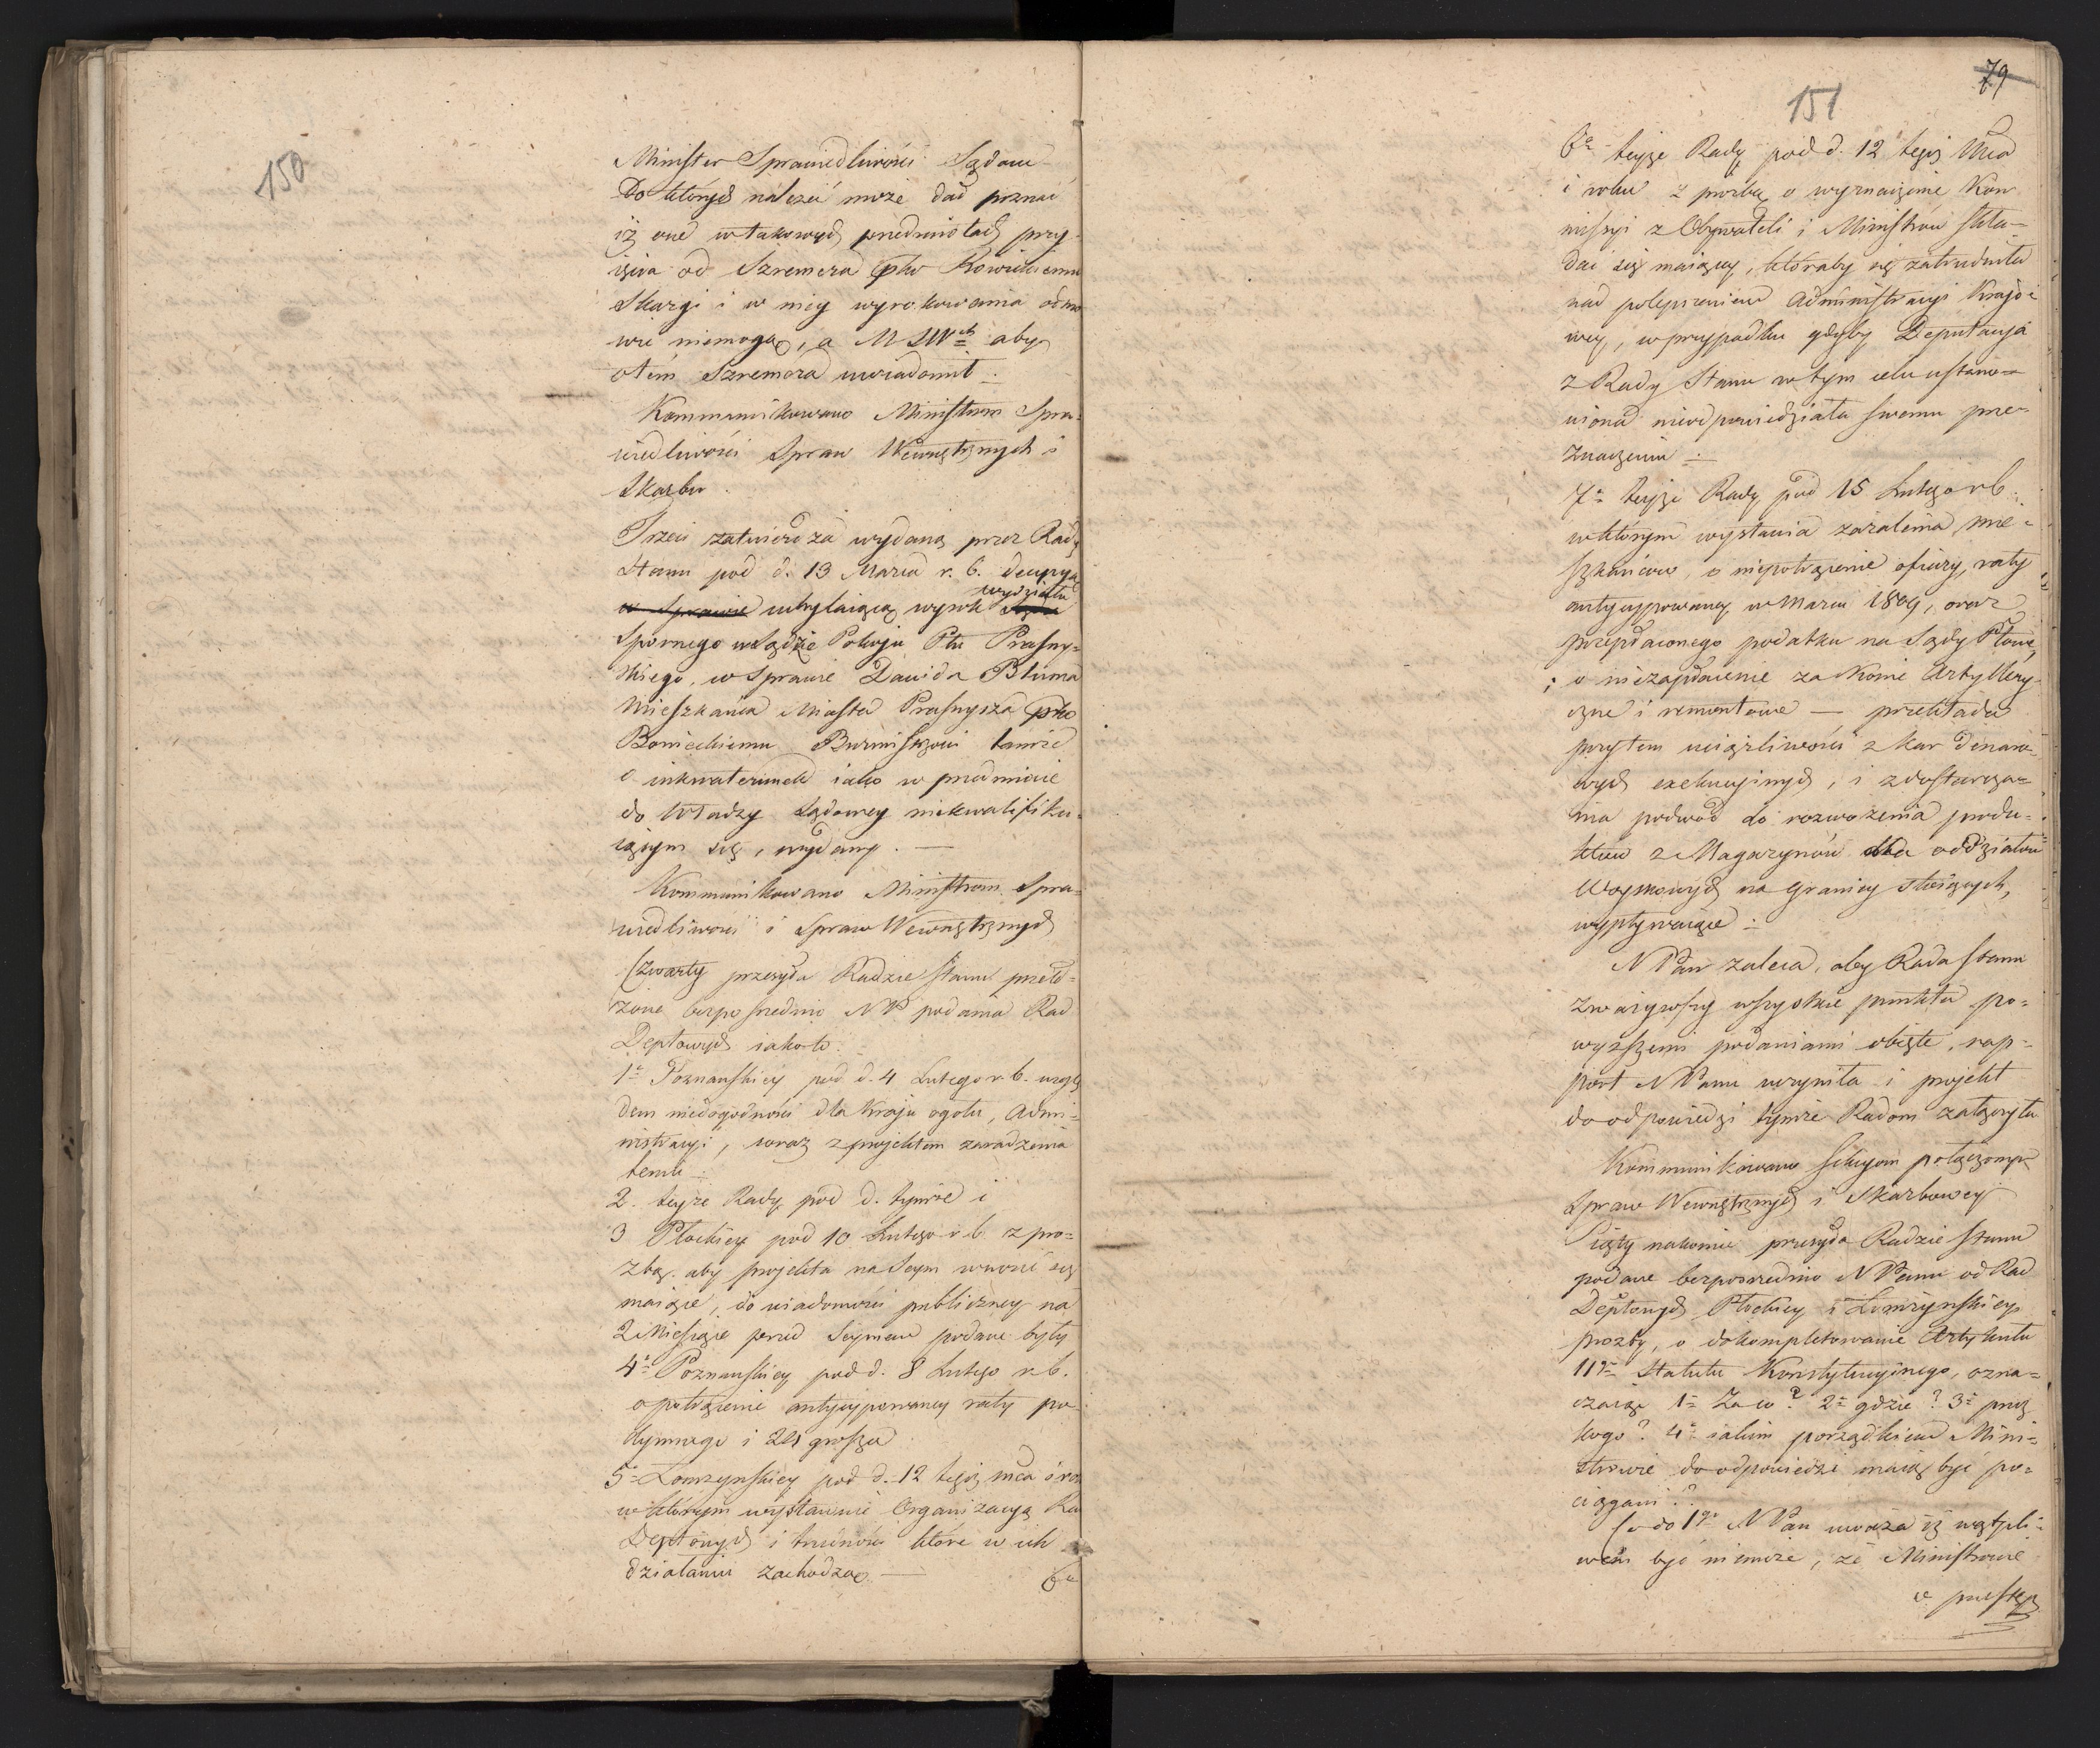 150
Minister Sprawiedliwości Sądom
Do których należeć może dać poznać
iż one w takowych przedmiotach przy-
ięcia od Szremera pko Rowickiemu
Skargi i w niey wyrokowania odmo
wić niemogą, a M SW aby
o tém Szremera uwiadomił.
Kommunikowano Ministrom Spra-
wiedliwości Spraw Wewnętrznych i
Skarbu.
Trzeci zatwierdza wydaną przez Radę
Stanu pod d. 13 Marca r. b. decyzyą
wydziału
w Sprawie uchylaiącą wyrok
Spornego w Sądzie Pokoju Ptu Prasny-
skiego, w Sprawie Dawida Bluma
Mieszkańca Miasta Prasnysza pko
Bonieckiemu Burmistrzowi tamże
o inkwaterunek iako w przedmiocie
do Władzy Sądowey niekwalifiku-
iącym się, wydany. —
Kommunikowano Ministrom Spra-
wiedliwości i Spraw Wewnętrznych
Czwarty przesyła Radzie Stanu przeło-
żone bezpośrednio NP podania Rad
Deptowych iako to:
1° Poznańskiey pod d. 4 Lutego r. b. wzglę
dem niedogodności dla Kraju ogółu, Admi-
nistracyi, wraz z projektem zaradzenia
temu.
2. teyże Rady pod d. tymże i
3 Płockiey pod 10 Lutego r. b. z pro-
źbą. aby projekta na Seym wnosić się
maiące, do wiadomości publiczney na
2 Miesiące przed Seymem podane były
4° Poznańskiey pod d. 8 Lutego r. b.
o potrącenie antycypowaney raty po
dymnego i 24 grosza.
5° Łomżyńskiey pod d. 12 tegoż mca i ro
w którym wystawuie Organizacyą Ra
Deptowych i trudności które w ich
działaniu zachodzą. —
6°
79
151
6° teyże Rady pod d. 12 tegoż Mca
i roku z prośbą o wyznaczenie Kom
missyi z Obywateli i Ministrów skła-
dać się maiącey, któraby się zatrudniła
nad polepszeniem Administracyi Krajo-
wey, w przypadku gdyby Deputacyja
z Rady Stanu w tym celu ustano-
wiona nieodpowiedziała swemu prze-
znaczeniu.
7° teyże Rady pod 15 Lutego r b.
w którym wystawia zażalenia mie-
szkańców, o niepotrącenie ofiary, raty
antycypowaney w Marcu 1809, oraz
przepłaconego podatku na Sądy Ptowe,
; o niezapłacenie za Konie Artyllery-
czne i remontowe — przekłada
przytem uciążliwości z kar Denaro-
wych exekucyinych, i z dostarcza-
nia podwód do rozwożenia produ-
któw z Magazynów dla oddziałów
Woyskowych na Granicy stoiących,
wypływaiące.
N Pan zaleca, aby Rada Stanu
zważywszy wszystkie punkta po-
wyższemi podaniami obięte, rap-
port N Panu uczyniła i projekt
do odpowiedzi tymże Radom załączyła
Kommunikowano Sekcyom połączonym
Spraw Wewnętrznych i Skarbowey
Piąty nakoniec przesyła Radzie Stanu
podane bezpośrednio N Panu od Rad
Deptowych Płockiey i Łomżyńskiey
prozby, o dokompletowanie Artykułu
11go Statutu Konstytucyinego, ozna-
czaiąc 1° Za co? 2° gdzie? 3° przez
kogo? 4° iakim porządkiem Mini-
strowie do odpowiedzi maią być po-
ciągani?
Co do 1go N Pan uważa iż wątpli-
wem być niemoże, że Ministrowie